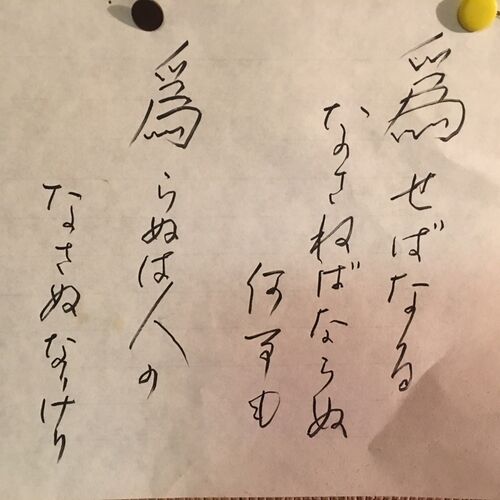 爲せばなる
なさねばならぬ
何事も
爲らぬは人の
なさぬなりけり